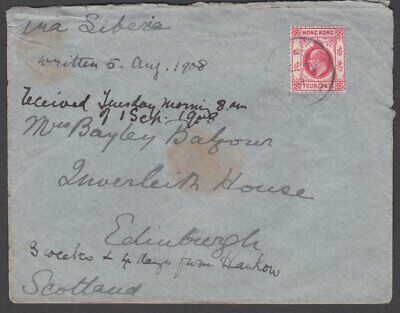 via Siberia
written 5. Aug. 1908
HONG KONG
FOUR CENTS
received Tuesday morning 8 am
1 Sep. 1908
Mrs Bayley Balfour
Inverleith House
Edinburgh
3 weeks & 4 days from Hankow
Scotland